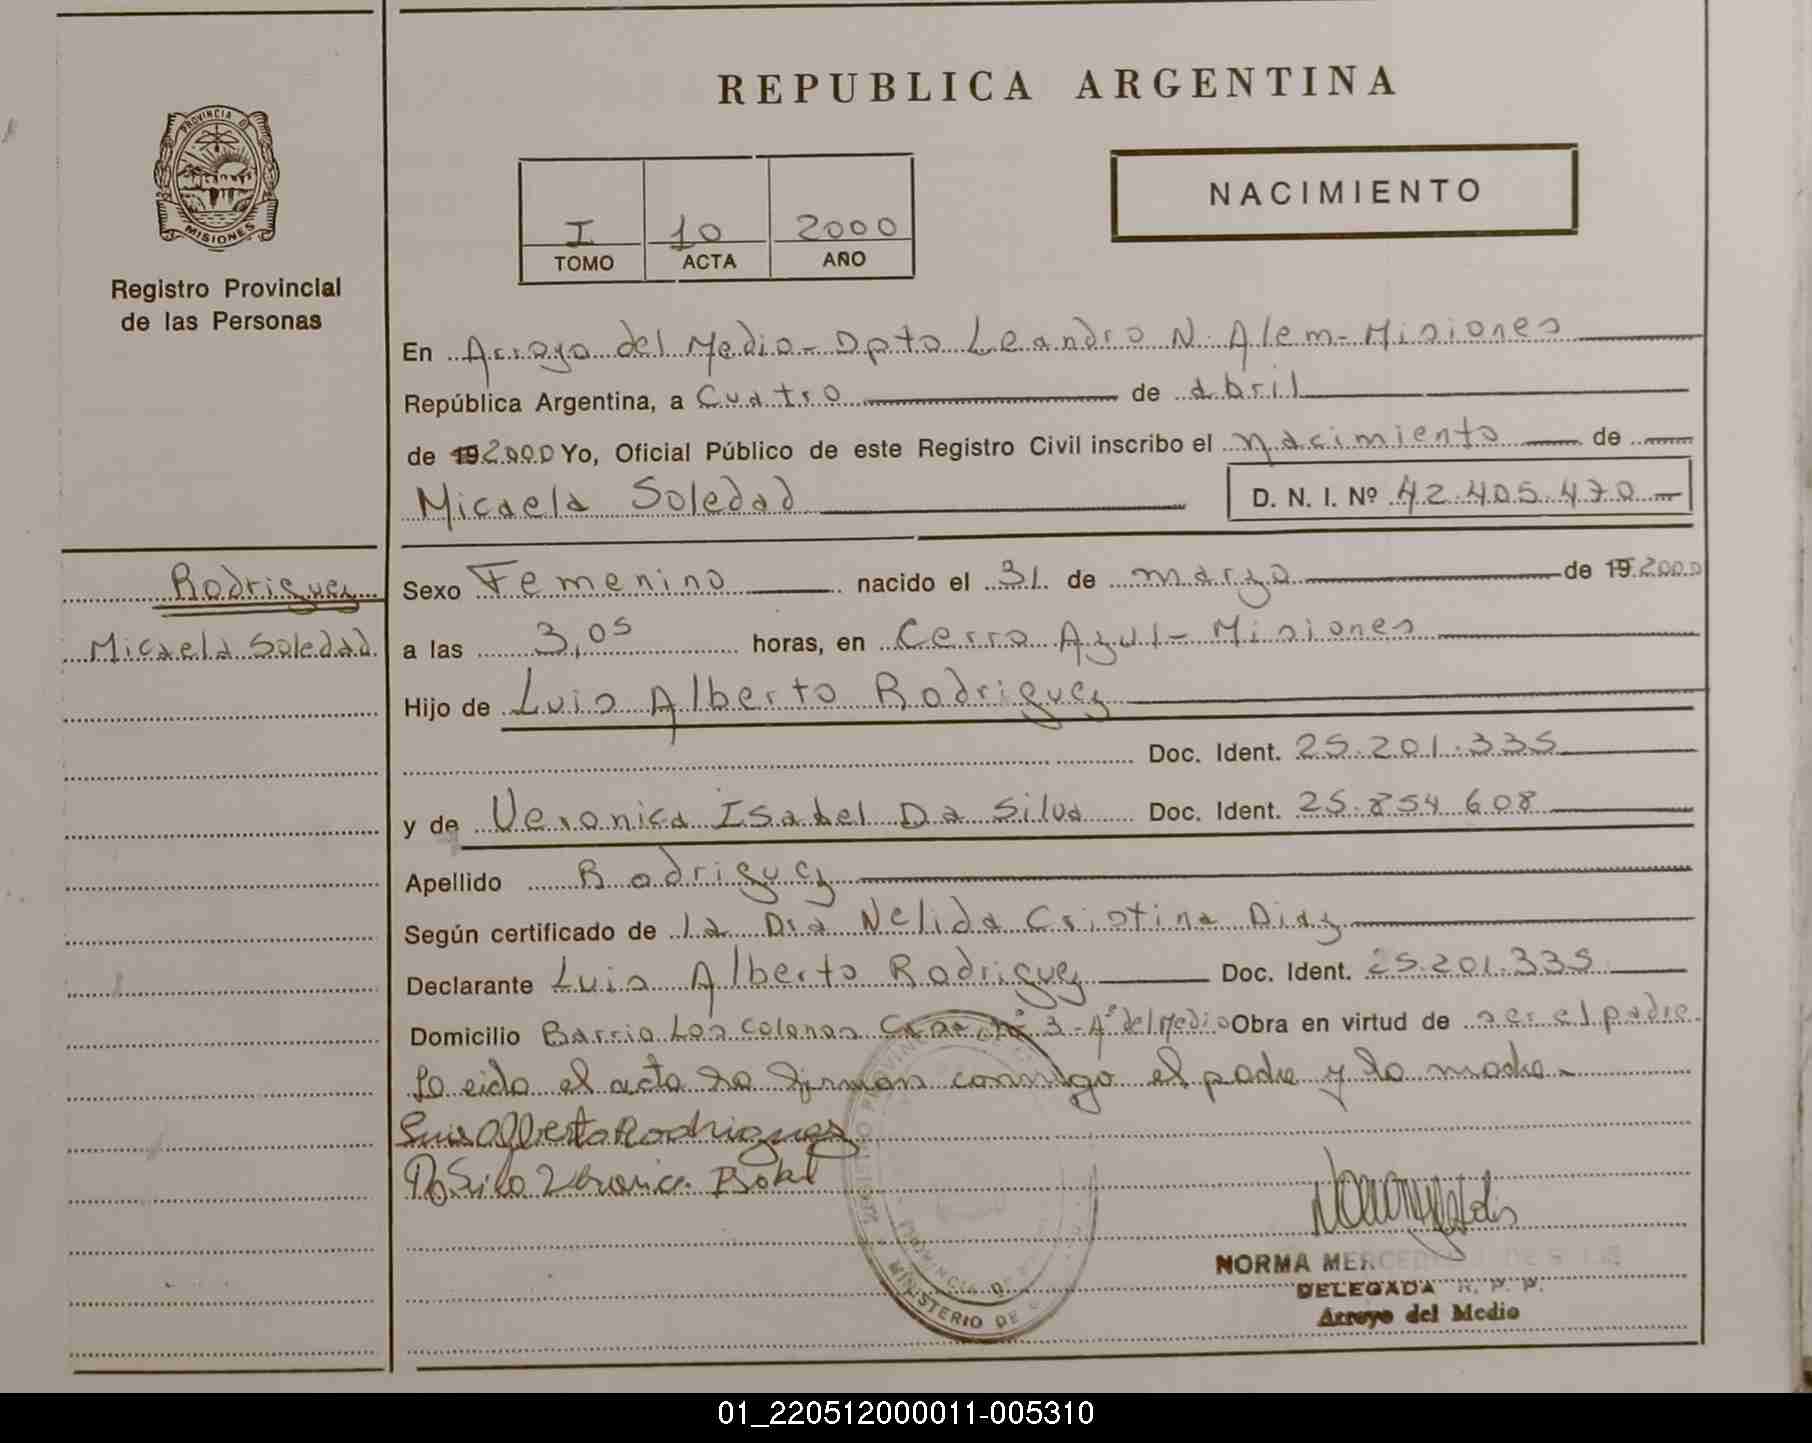 REPUBLICA ARGENTINA
PROVINCIA D
MISIONES
Registro Provincial
de las Personas
I 10 2000
TOMO ACTA AÑO
NACIMIENTO
En Arroyo del Medio - Dpto Leandro N. Alem - Misiones
República Argentina, a Cuatro de abril
de 19 2000 Yo, Oficial Público de este Registro Civil inscribo el nacimiento de
Micaela Soledad D. N. I. Nº 42.405.470
Rodriguez
Micaela Soledad
Sexo Femenino nacido el 31 de marzo de 19 2000
a las 3,05 horas, en Cerro Azul - Misiones
Hijo de Luis Alberto Rodriguez
Doc. Ident. 25.201.335
y de Veronica Isabel Da Silva Doc. Ident. 25.854.608
Apellido Rodriguez
Según certificado de la Dra Nelida Cristina Diaz
Declarante Luis Alberto Rodriguez Doc. Ident. 25.201.335
Domicilio Barrio Los Colonos Casa Nº 3 - Aº del Medio Obra en virtud de ser el padre
Leido el acta la firman conmigo el padre y la madre -
Luis Alberto Rodriguez
Da Silva Veronica Isabel
NORMA MERCED
DELEGADA R. P. P.
Arroyo del Medio
MINISTERIO DE
01_220512000011-005310